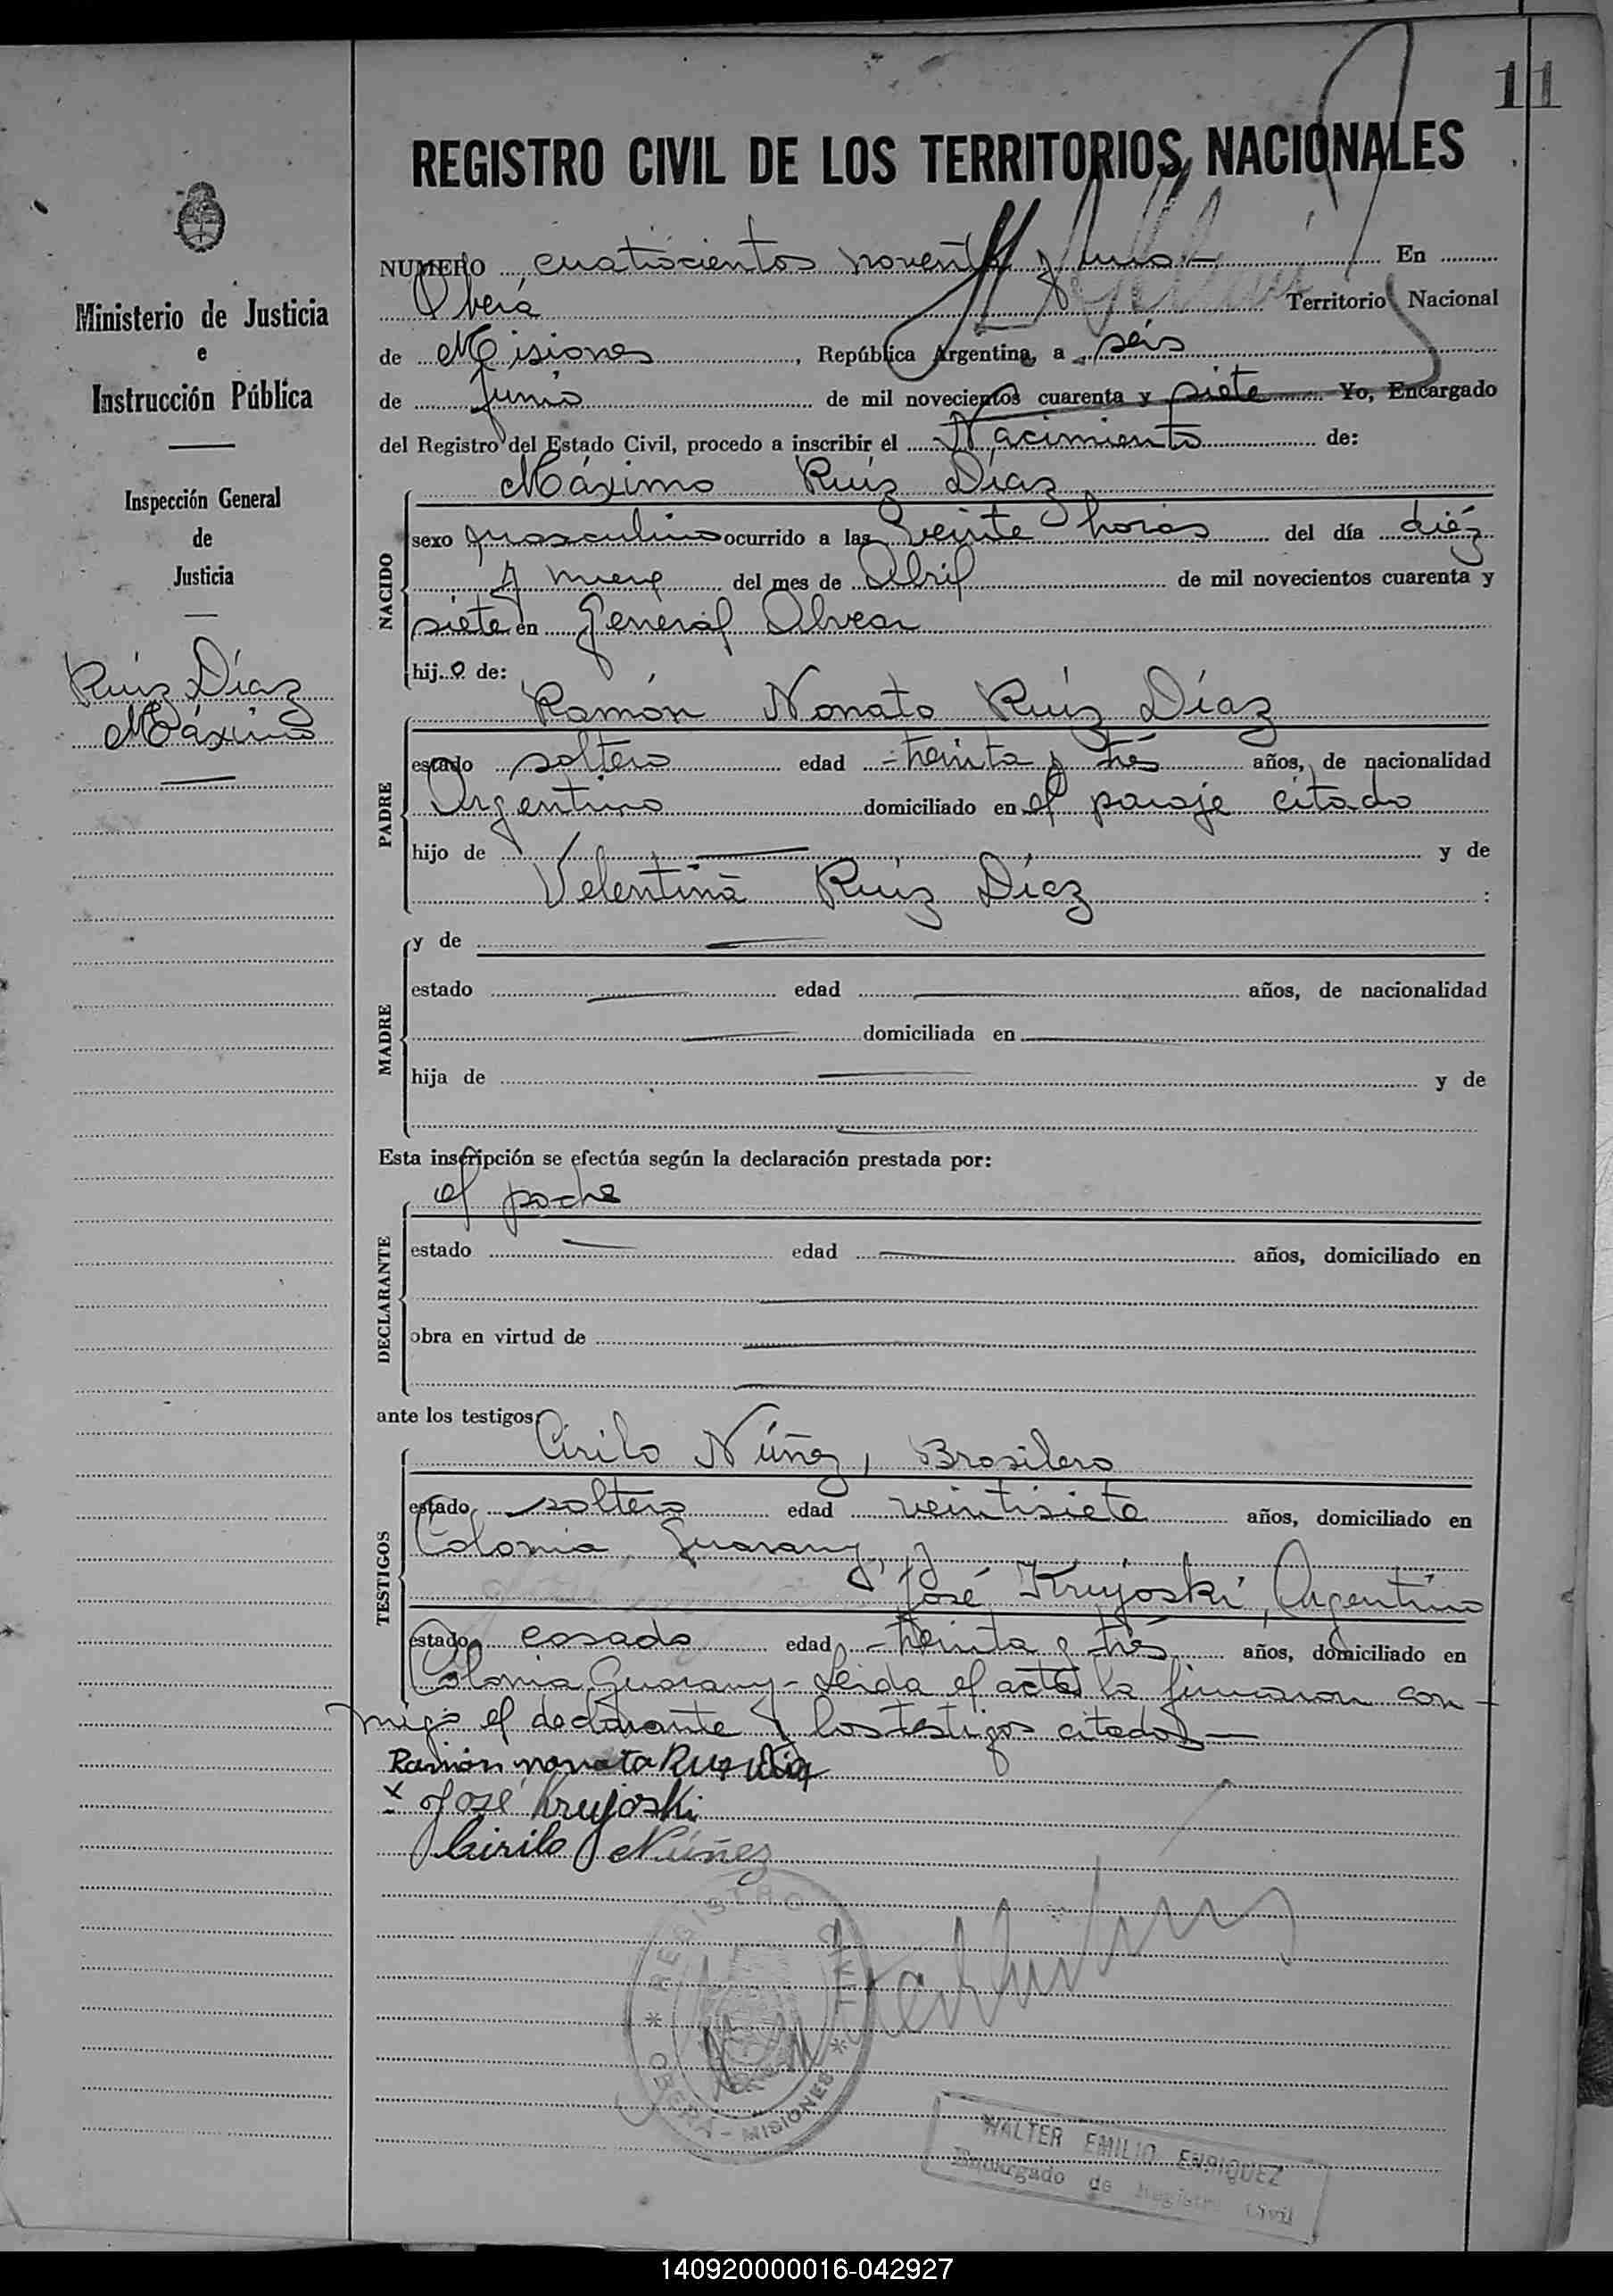 11
REGISTRO CIVIL DE LOS TERRITORIOS NACIONALES
Ministerio de Justicia
e
Instrucción Pública
Inspección General
de
Justicia
Ruíz Díaz
Máximo
NUMERO cuatrocientos noventa y uno.- En
Oberá Territorio Nacional
de Misiones, República Argentina, a seis
de Junio de mil novecientos cuarenta y siete Yo, Encargado
del Registro del Estado Civil, procedo a inscribir el Nacimiento de:
NACIDO
Máximo Ruíz Díaz
sexo masculino ocurrido a las veinte horas del día diéz
y nueve del mes de Abril de mil novecientos cuarenta y
siete en General Alvear
hijo de:
PADRE
Ramón Nonato Ruíz Díaz
estado soltero edad treinta y trés años, de nacionalidad
Argentino domiciliado en el paraje citado
hijo de y de
Velentina Ruíz Díaz :
MADRE
y de
estado edad años, de nacionalidad
domiciliada en
hija de y de
Esta inscripción se efectúa según la declaración prestada por:
DECLARANTE
el padre
estado edad años, domiciliado en
obra en virtud de
ante los testigos:
TESTIGOS
Cirilo Núñez, Brasilero
estado soltero edad veintisiete años, domiciliado en
Colonia Guarany, y
José Krujoski, Argentino
estado casado edad treinta y trés años, domiciliado en
Colonia Guarany - Leída el acta la firmaron con-
migo el declarante y los testigos citados—
Ramón nonato Ruz Diaz
x José Krujoski
Cirilo Núñez
* REGISTRO CIVIL *
OBERA - MISIONES
WALTER EMILIO ENRIQUEZ
Encargado de Registro Civil
140920000016-042927